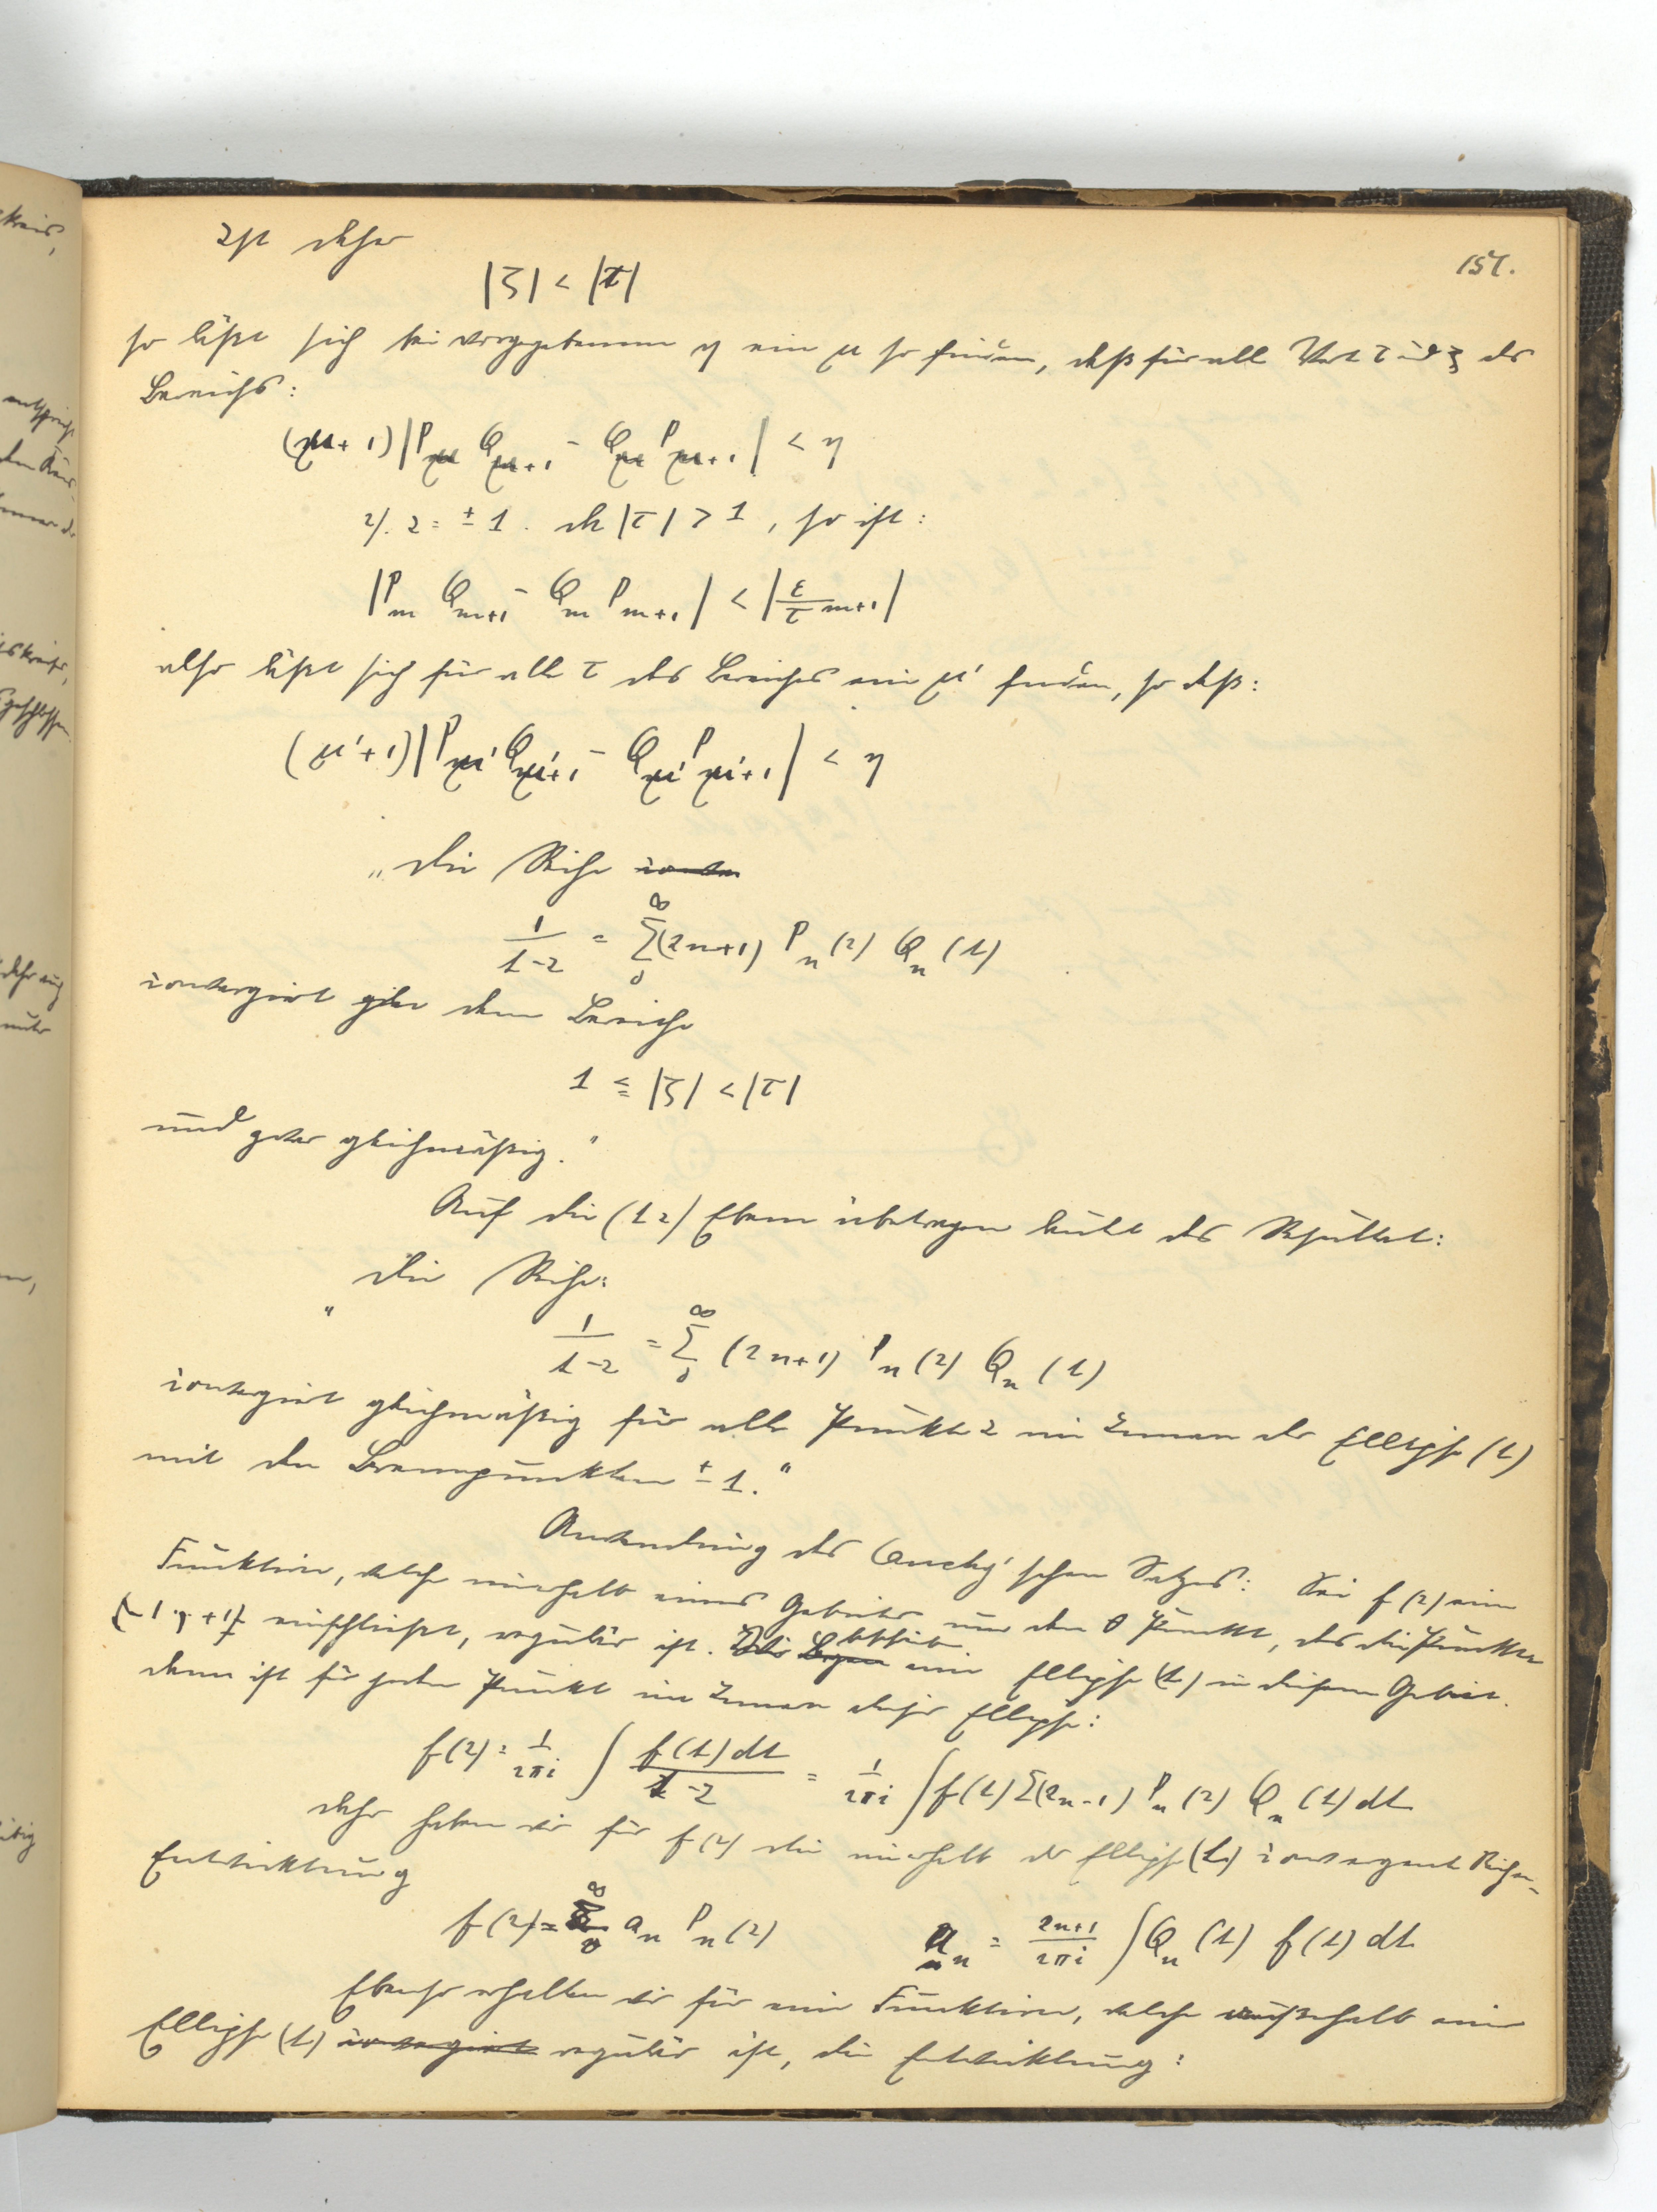 157.
Ist daher
|ζ| < |τ|
so läßt sich bei vorgegebenem η ein μ so finden, daß für alle Werte τ und ζ des
Bereichs:
(μ+1)|P_μ Q_{μ+1} - Q_μ P_{μ+1}| < η
2). z = ± 1. da |τ| > 1, so ist:
|P_m Q_{m+1} - Q_m P_{m+1}| < |ε/τ^{m+1}|
also läßt sich für alle τ des Bereiches ein μ' finden, so daß:
(μ'+1)|P_{μ'} Q_{μ'+1} - Q_{μ'} P_{μ'+1}| < η
„Die Reihe
1/(t-z) = ∑_0^∞ (2n+1) P_n(z) Q_n(t)
convergirt über dem Bereiche
1 ≦ |ζ| < |τ|
und zwar gleichmäßig."
Auf die (t z) Ebene übertragen lautet das Resultat:
„Die Reihe:
1/(t-z) = ∑_0^∞ (2n+1) P_n(z) Q_n(t)
convergirt gleichmäßig für alle Punkte z im Innern der Ellipse (t)
mit den Brennpunkten ± 1."
Anwendung des Cauchy'schen Satzes: Sei f(z) eine
Funktion, welche innerhalb eines Gebietes um den 0 Punkt, das die Punkte
(-1, +1) einschließt, regulär ist. eine Ellipse (t) in diesem Gebiet.
dann ist für jeden Punkt im Innern dieser Ellipse:
f(z) = 1/2πi ∫ f(t)dt/(t-z) = 1/2πi ∫ f(t) ∑(2n-1) P_n(z) Q_n(t) dt
daher haben wir für f(z) die innerhalb der Ellipse (t) convergente Reihen-
Entwicklung
f(z) = ∑_0^∞ a_n P_n(z) a_n = (2n+1)/2πi ∫ Q_n(t) f(t) dt
Ebenso erhalten wir für eine Funktion, welche außerhalb einer
Ellipse (t) convergirt regulär ist, die Entwicklung: